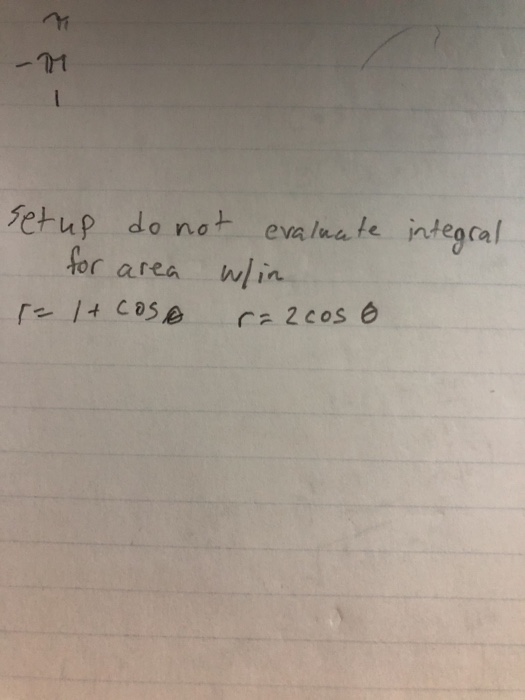 π
-π
1
setup do not evaluate integral
for area w/in
r= 1+ cosθ r= 2cos θ